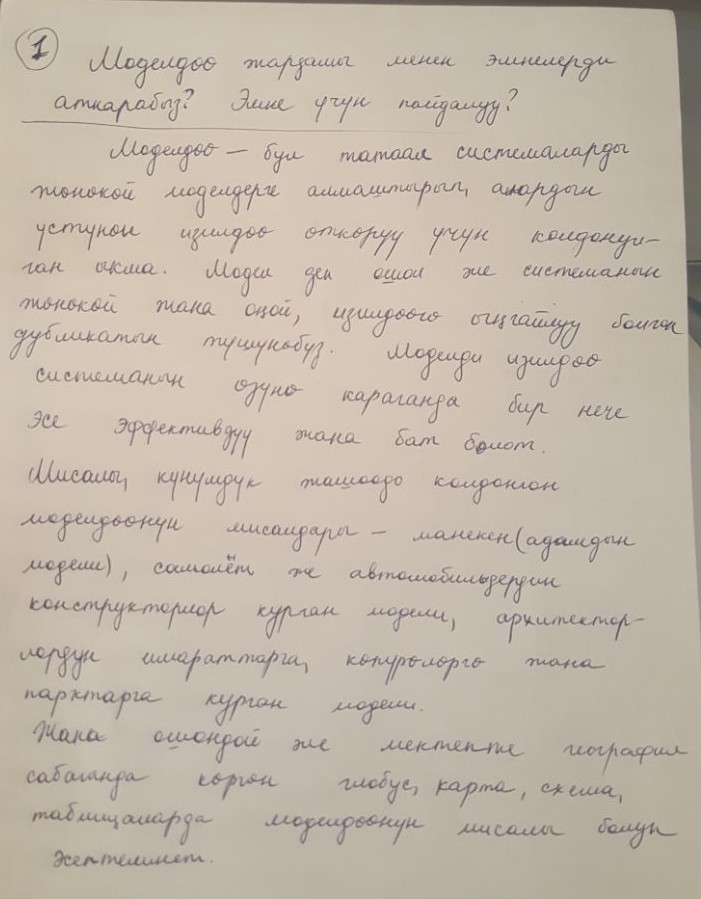 1 Моделдөө жардамы менен эмнелерди
аткарабыз? Эмне үчүн пайдалуу?
Моделдөө – бул татаал системаларды
жөнөкөй моделдерге алмаштырып, алардын
үстүнөн изилдөө өткөрүү үчүн колдонул-
ган ыкма. Модел деп ошол эле системанын
жөнөкөй жана оңой, изилдөөгө ыңгайлуу болгон
дубликатын түшүнөбүз. Моделди изилдөө
системанын өзүнө караганда бир нече
эсе эффективдүү жана бат болот.
Мисалы, күнүмдүк жашоодо колдонгон
моделдөөнүн мисалдары – манекен (адамдын
модели), самолёт же автомобильдердин
конструкторлор курган модели, архитектор-
лордун имараттарга, көпүрөлөргө жана
парктарга курган модели.
Жана ошондой эле мектепте география
сабаганда көргөн глобус, карта, схема,
таблицаларда моделдөөнүн мисалы болуп
эсептелинет.